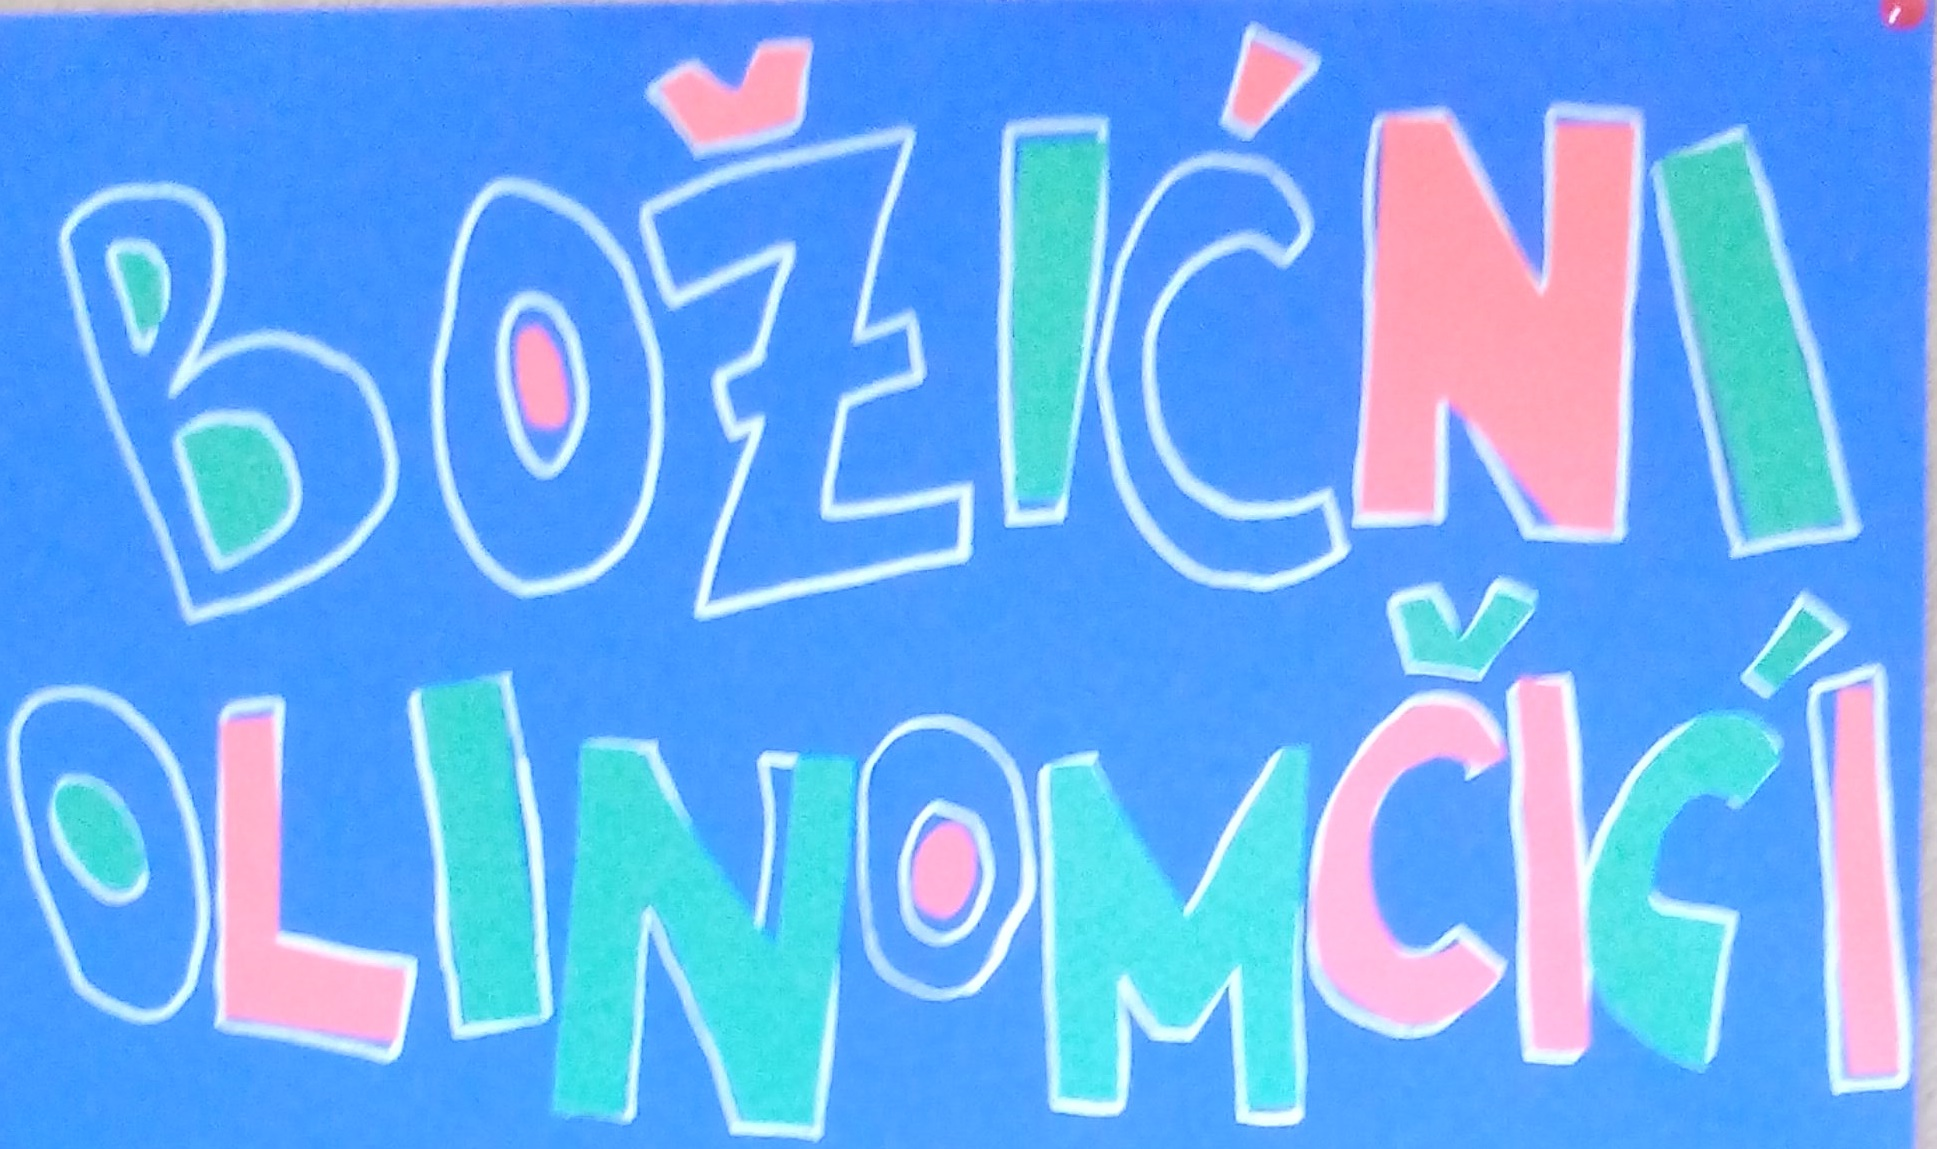 BOŽIĆNI
OLINOMČIĆI